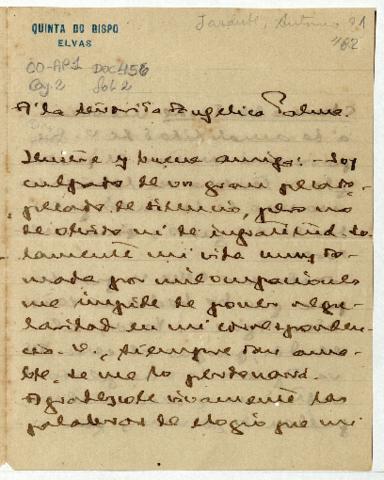 QUINTA DO BISPO
ELVAS
Sardinha, Antonio 21
182
CO-AP1 DOC 456
Caj. 2 Fol. 2
A' la Señorita Angelica Palma.
Ilustre y buena amiga: - Soy
culpado de un gran pecado,
pecado de silencio, pero no
de olvido ni de ingratitud. So-
lamente mi vida muy to-
mada por mil ocupaciones
me impide de poner regu-
laridad en mi corresponden-
cia. V., siempre tan ama-
ble, se me lo perdonará.
Agradezcole vivamente las
palabras de elogio que mi